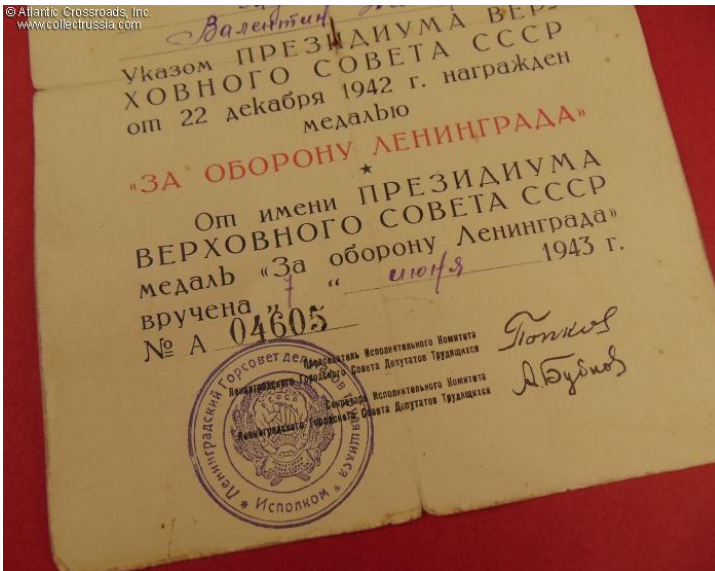 © Atlantic Crossroads, Inc.
www.collectrussia.com
Валентин
Указом ПРЕЗИДИУМА ВЕР-
ХОВНОГО СОВЕТА СССР
от 22 декабря 1942 г. награжден
медалью
«ЗА ОБОРОНУ ЛЕНИНГРАДА»
От имени ПРЕЗИДИУМА
ВЕРХОВНОГО СОВЕТА СССР
медаль «За оборону Ленинграда»
вручена „ 7 “ июня 1943 г.
№ А 04605
Председатель Исполнительного Комитета
Ленинградского Городского Совета Депутатов Трудящихся
Попков
Секретарь Исполнительного Комитета
Ленинградского Городского Совета Депутатов Трудящихся
А.Бубнов
Ленинградский Горсовет депутатов трудящихся
* Исполком *
РСФСР